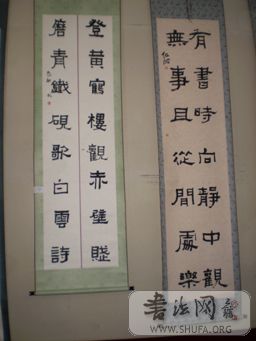 有書時向靜中觀
無事且從間處樂
登黃鶴樓觀赤壁賦
磨青鐵硯歌白雲詩
書法网
WWW.SHUFA.ORG